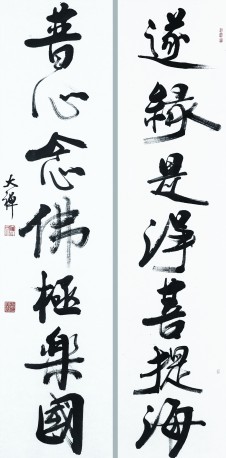 遂緣是浄菩提海
普心念佛極樂國
大禅